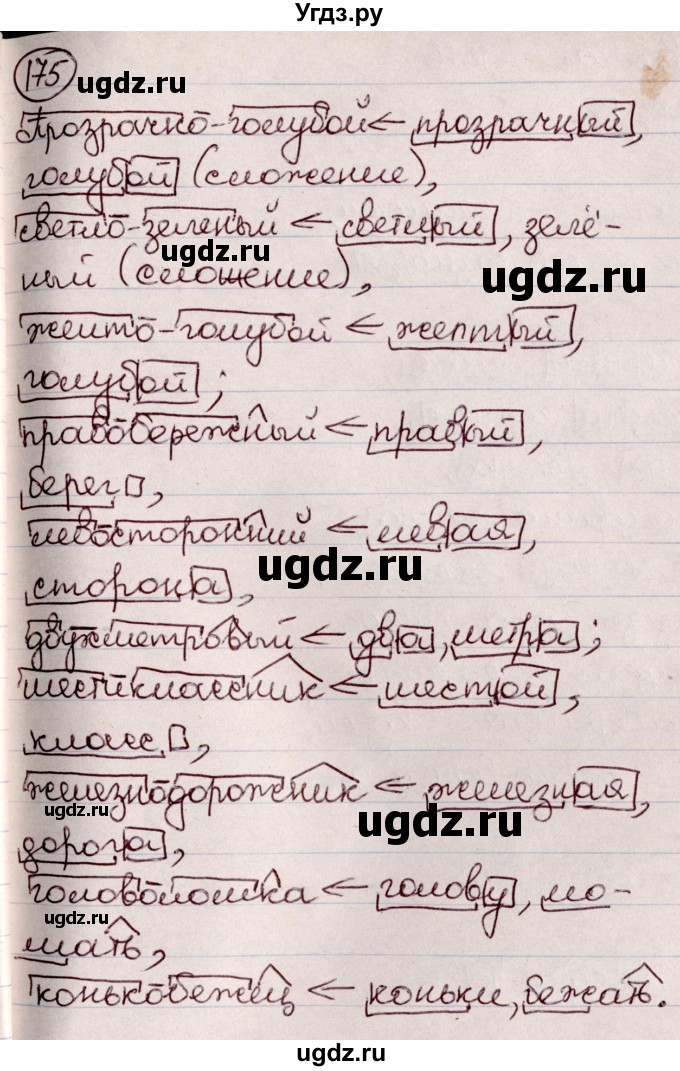 Угдз.ру
175
ugdz.ru
Прозрачно-голубой ← прозрачный,
голубой (сложение),
светло-зеленый ← светлый, зелё-
ugdz.ru
ugdz.ru
ный (сложение),
желто-голубой ← желтый,
голубой;
правобережный ← правый,
берег,
левосторонний ← левая,
ugdz.ru
сторона,
двухметровый ← два, метра;
шестиклассник ← шестой,
класс,
железнодорожник ← железная,
ugdz.ru
ugdz.ru
дорога,
головоломка ← голову, ло-
ugdz.ru
мать,
конькобежец ← коньки, бежать.
ugdz.ru
ugdz.ru